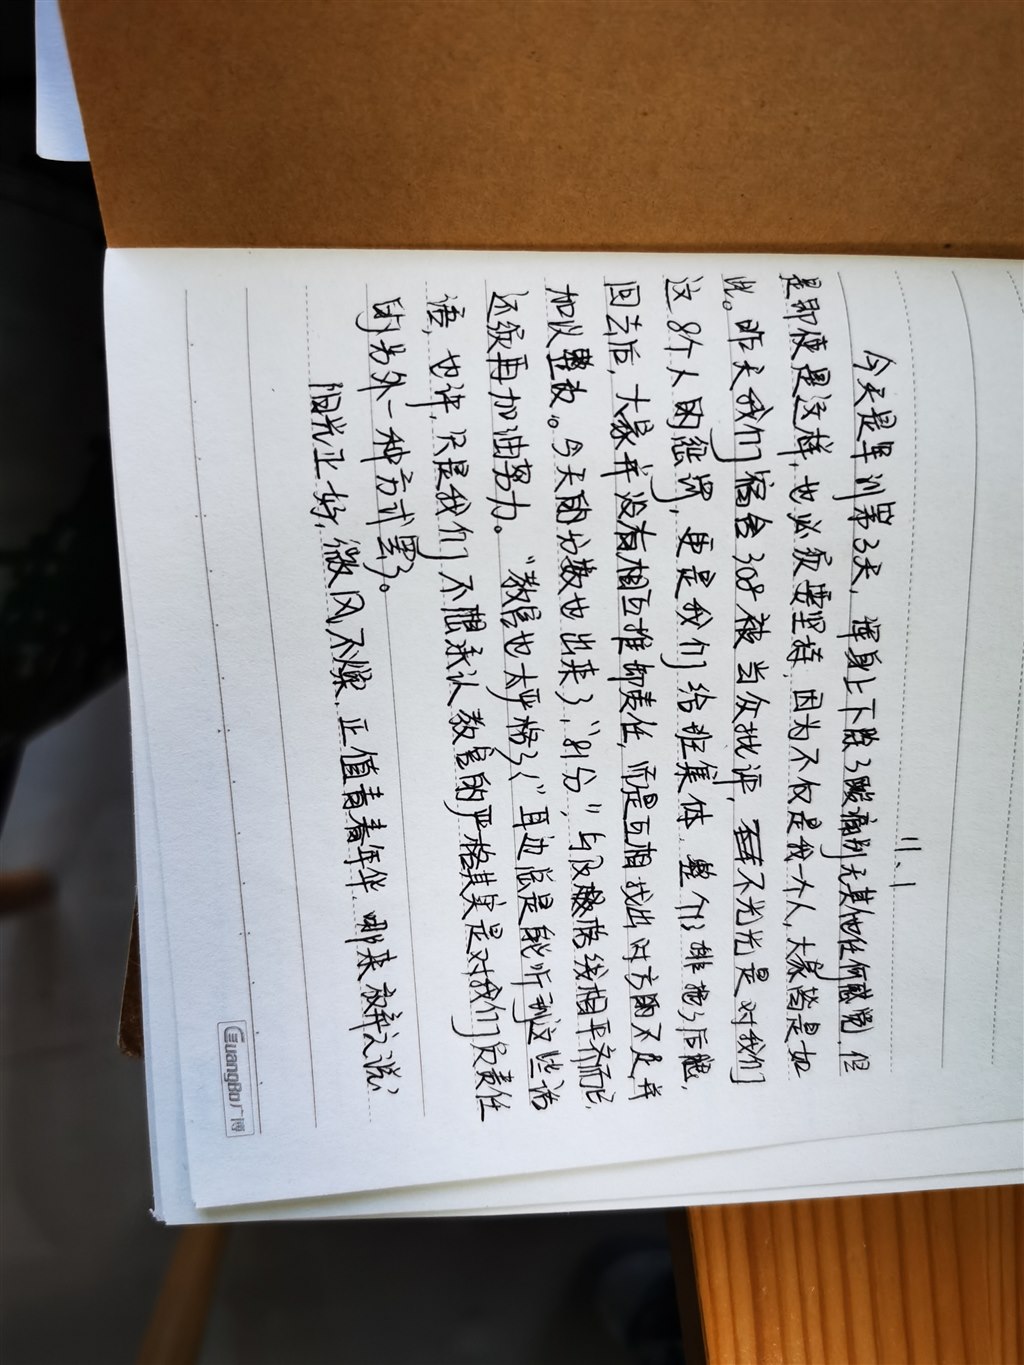 11、1
今天是军训第3天，浑身上下除了酸痛别无其他任何感觉，但
是即使是这样，也必须要坚持，因为不仅是我一个人，大家皆是如
此。昨天我们宿舍308被当众批评，不光光是对我们
这8个人的惩罚，更是我们给班集体、整个排拖了后腿，
回去后，大家并没有相互推卸责任，而是互相找出对方的不足，并
加以整改。今天的分数也出来了，“别分”与及格线相平齐而已，
还须再加油努力。“教官也太严格了！”耳边总是能听到这些话
语，也许，只是我们不想承认教官的严格其实是对我们负责任
的另外一种方式罢了。
阳光正好，微风不燥，正值青春年华，哪来辞之说？
GuangBo广博